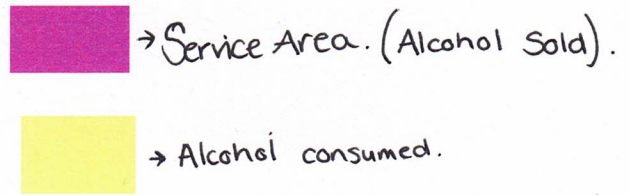 → Service Area. (Alcohol Sold).
→ Alcohol consumed.